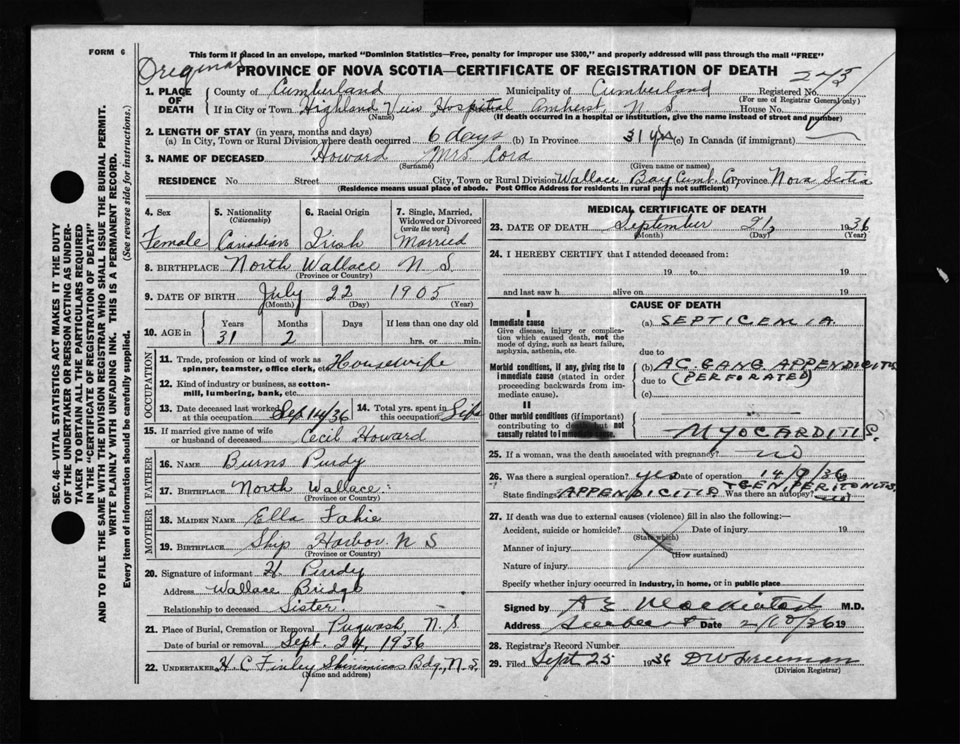 FORM 6
This form if placed in an envelope, marked "Dominion Statistics—Free, penalty for improper use $300," and properly addressed will pass through the mail "FREE"
Original
PROVINCE OF NOVA SCOTIA—CERTIFICATE OF REGISTRATION OF DEATH
243
1. PLACE OF DEATH County of Cumberland Municipality of Cumberland Registered No.
(For use of Registrar General only)
If in City or Town Highland View Hospital Amherst, N. S House No.
(Name) (If death occurred in a hospital or institution, give the name instead of street and number)
2. LENGTH OF STAY (in years, months and days)
(a) In City, Town or Rural Division where death occurred 6 days (b) In Province 31 yrs (c) In Canada (if immigrant)
3. NAME OF DECEASED Howard Mrs Cora
(Surname) (Given name or names)
RESIDENCE No Street City, Town or Rural Division Wallace Bay Cumb. Co. Province Nova Scotia
(Residence means usual place of abode. Post Office Address for residents in rural parts not sufficient)
SEC. 46—VITAL STATISTICS ACT MAKES IT THE DUTY
OF THE UNDERTAKER OR PERSON ACTING AS UNDER-
TAKER TO OBTAIN ALL THE PARTICULARS REQUIRED
IN THE "CERTIFICATE OF REGISTRATION OF DEATH"
AND TO FILE THE SAME WITH THE DIVISION REGISTRAR WHO SHALL ISSUE THE BURIAL PERMIT.
WRITE PLAINLY WITH UNFADING INK. THIS IS A PERMANENT RECORD.
Every item of information should be carefully supplied. (See reverse side for instructions.)
4. Sex 5. Nationality 6. Racial Origin 7. Single, Married, Widowed or Divorced
(Citizenship) (write the word)
Female Canadian Irish Married
8. BIRTHPLACE North Wallace N S
(Province or Country)
9. DATE OF BIRTH July 22 1905
(Month) (Day) (Year)
10. AGE in Years Months Days If less than one day old
31 2 hrs. or min.
OCCUPATION
11. Trade, profession or kind of work as spinner, teamster, office clerk, etc. Housewife
12. Kind of industry or business, as cotton-mill, lumbering, bank, etc.
13. Date deceased last worked at this occupation Sept 14/36 14. Total yrs. spent in this occupation Life
15. If married give name of wife or husband of deceased Cecil Howard
FATHER
16. NAME Burns Purdy
17. BIRTHPLACE North Wallace
(Province or Country)
MOTHER
18. MAIDEN NAME Ella Fahie
19. BIRTHPLACE Ship Harbor N S
(Province or Country)
20. Signature of informant H. Purdy
Address Wallace Bridge
Relationship to deceased Sister.
21. Place of Burial, Cremation or Removal Pugwash, N. S
Date of burial or removal Sept. 24, 1936
22. UNDERTAKER H. C. Finley Shinimicas Bdg., N. S.
(Name and address)
MEDICAL CERTIFICATE OF DEATH
23. DATE OF DEATH September 21, 1936
(Month) (Day) (Year)
24. I HEREBY CERTIFY that I attended deceased from:
19 to 19
and last saw h alive on 19
CAUSE OF DEATH
I
Immediate cause (a) SEPTICEMIA
Give disease, injury or complication which caused death, not the mode of dying, such as heart failure, asphyxia, asthenia, etc.
due to
Morbid conditions, if any, giving rise to immediate cause (stated in order proceeding backwards from immediate cause).
(b) AC. GANG. APPENDICITIS
due to (PERFORATED)
(c)
II
Other morbid conditions (if important) contributing to death but not causally related to immediate cause.
MYOCARDITIS.
25. If a woman, was the death associated with pregnancy? no
26. Was there a surgical operation? yes Date of operation 14/9/36
State findings APPENDICITIS & GEN PERITONITIS. Was there an autopsy? no
27. If death was due to external causes (violence) fill in also the following:—
Accident, suicide or homicide? Date of injury 19
(State which)
Manner of injury
(How sustained)
Nature of injury
Specify whether injury occurred in industry, in home, or in public place
Signed by M.D.
Address Date 2/10/36 19
28. Registrar's Record Number
29. Filed Sept 25 1936 D W Freeman
(Division Registrar)